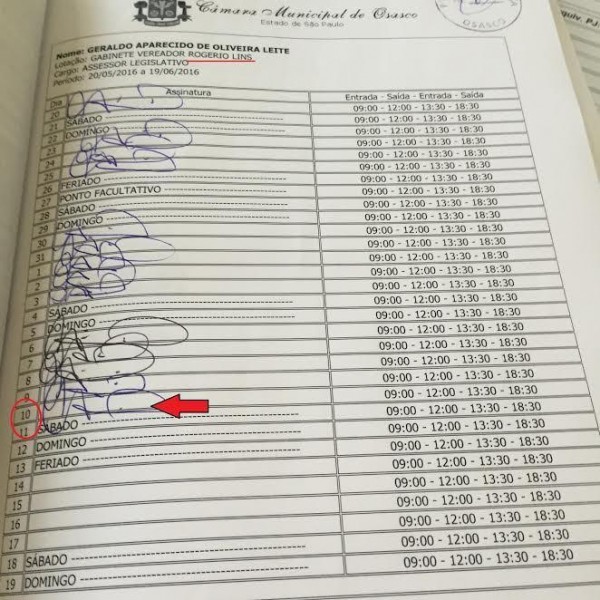 Câmara Municipal de Osasco
Estado de São Paulo
OSASCO
quiv. PJ
Nome: GERALDO APARECIDO DE OLIVEIRA LEITE
Lotação: GABINETE VEREADOR ROGERIO LINS
Cargo: ASSESSOR LEGISLATIVO
Período: 20/05/2016 a 19/06/2016
Dia Assinatura Entrada - Saída - Entrada - Saída
20 09:00 - 12:00 - 13:30 - 18:30
21 SÁBADO 09:00 - 12:00 - 13:30 - 18:30
22 DOMINGO 09:00 - 12:00 - 13:30 - 18:30
23 09:00 - 12:00 - 13:30 - 18:30
24 09:00 - 12:00 - 13:30 - 18:30
25 09:00 - 12:00 - 13:30 - 18:30
26 FERIADO 09:00 - 12:00 - 13:30 - 18:30
27 PONTO FACULTATIVO 09:00 - 12:00 - 13:30 - 18:30
28 SÁBADO 09:00 - 12:00 - 13:30 - 18:30
29 DOMINGO 09:00 - 12:00 - 13:30 - 18:30
30 09:00 - 12:00 - 13:30 - 18:30
31 09:00 - 12:00 - 13:30 - 18:30
1 09:00 - 12:00 - 13:30 - 18:30
2 09:00 - 12:00 - 13:30 - 18:30
3 09:00 - 12:00 - 13:30 - 18:30
4 SÁBADO 09:00 - 12:00 - 13:30 - 18:30
5 DOMINGO 09:00 - 12:00 - 13:30 - 18:30
6 09:00 - 12:00 - 13:30 - 18:30
7 09:00 - 12:00 - 13:30 - 18:30
8 09:00 - 12:00 - 13:30 - 18:30
9 09:00 - 12:00 - 13:30 - 18:30
10 09:00 - 12:00 - 13:30 - 18:30
11 SÁBADO 09:00 - 12:00 - 13:30 - 18:30
12 DOMINGO 09:00 - 12:00 - 13:30 - 18:30
13 FERIADO 09:00 - 12:00 - 13:30 - 18:30
14 09:00 - 12:00 - 13:30 - 18:30
15 09:00 - 12:00 - 13:30 - 18:30
16 09:00 - 12:00 - 13:30 - 18:30
17 09:00 - 12:00 - 13:30 - 18:30
18 SÁBADO 09:00 - 12:00 - 13:30 - 18:30
19 DOMINGO 09:00 - 12:00 - 13:30 - 18:30